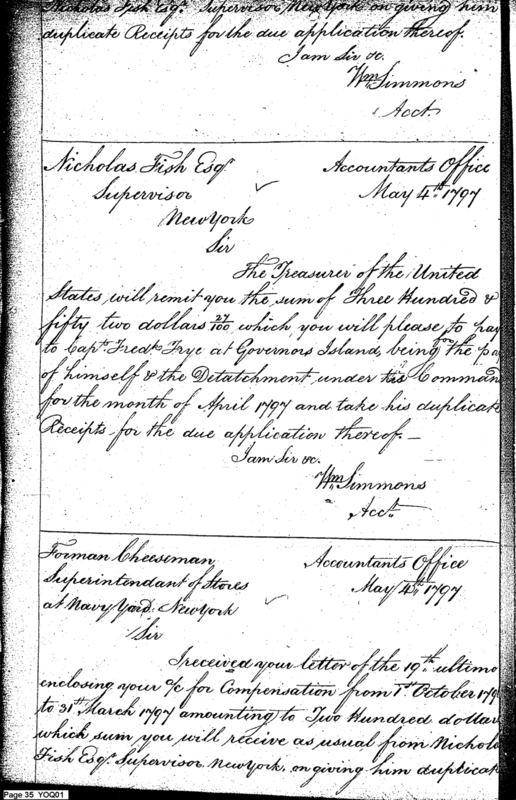 Nicholas Fish Esqr. Supervisor New York on giving him
duplicate Receipts for the due application thereof.
I am Sir &c.
Wm Simmons
Acct.
Nicholas Fish Esqr.
Accountants Office
Supervisor
May 4th. 1797
New York
Sir
The Treasurer of the United
States, will remit you the sum of Three Hundred &
fifty two dollars 27/100 which, you will please, to pay
to Capt. Fredk. Frye at Governors Island, being for the pa
of himself & the Detatchment, under his Comman
for the month of April 1797 and take his duplicate
Receipts for the due application thereof. —
I am Sir &c.
Wm Simmons
Acct.
Forman Cheeseman
Accountants Office
Superintendant of Stores
May 4th. 1797
at Navy Yard New York
Sir
I received your letter of the 19th. ultimo
enclosing your a/c for Compensation from 1st October 179
to 31st. March 1797 amounting to Two Hundred dollar
which sum you will receive as usual from Nichola
Fish Esqr. Supervisor New York, on giving him duplicat
Page 35 YOQ01